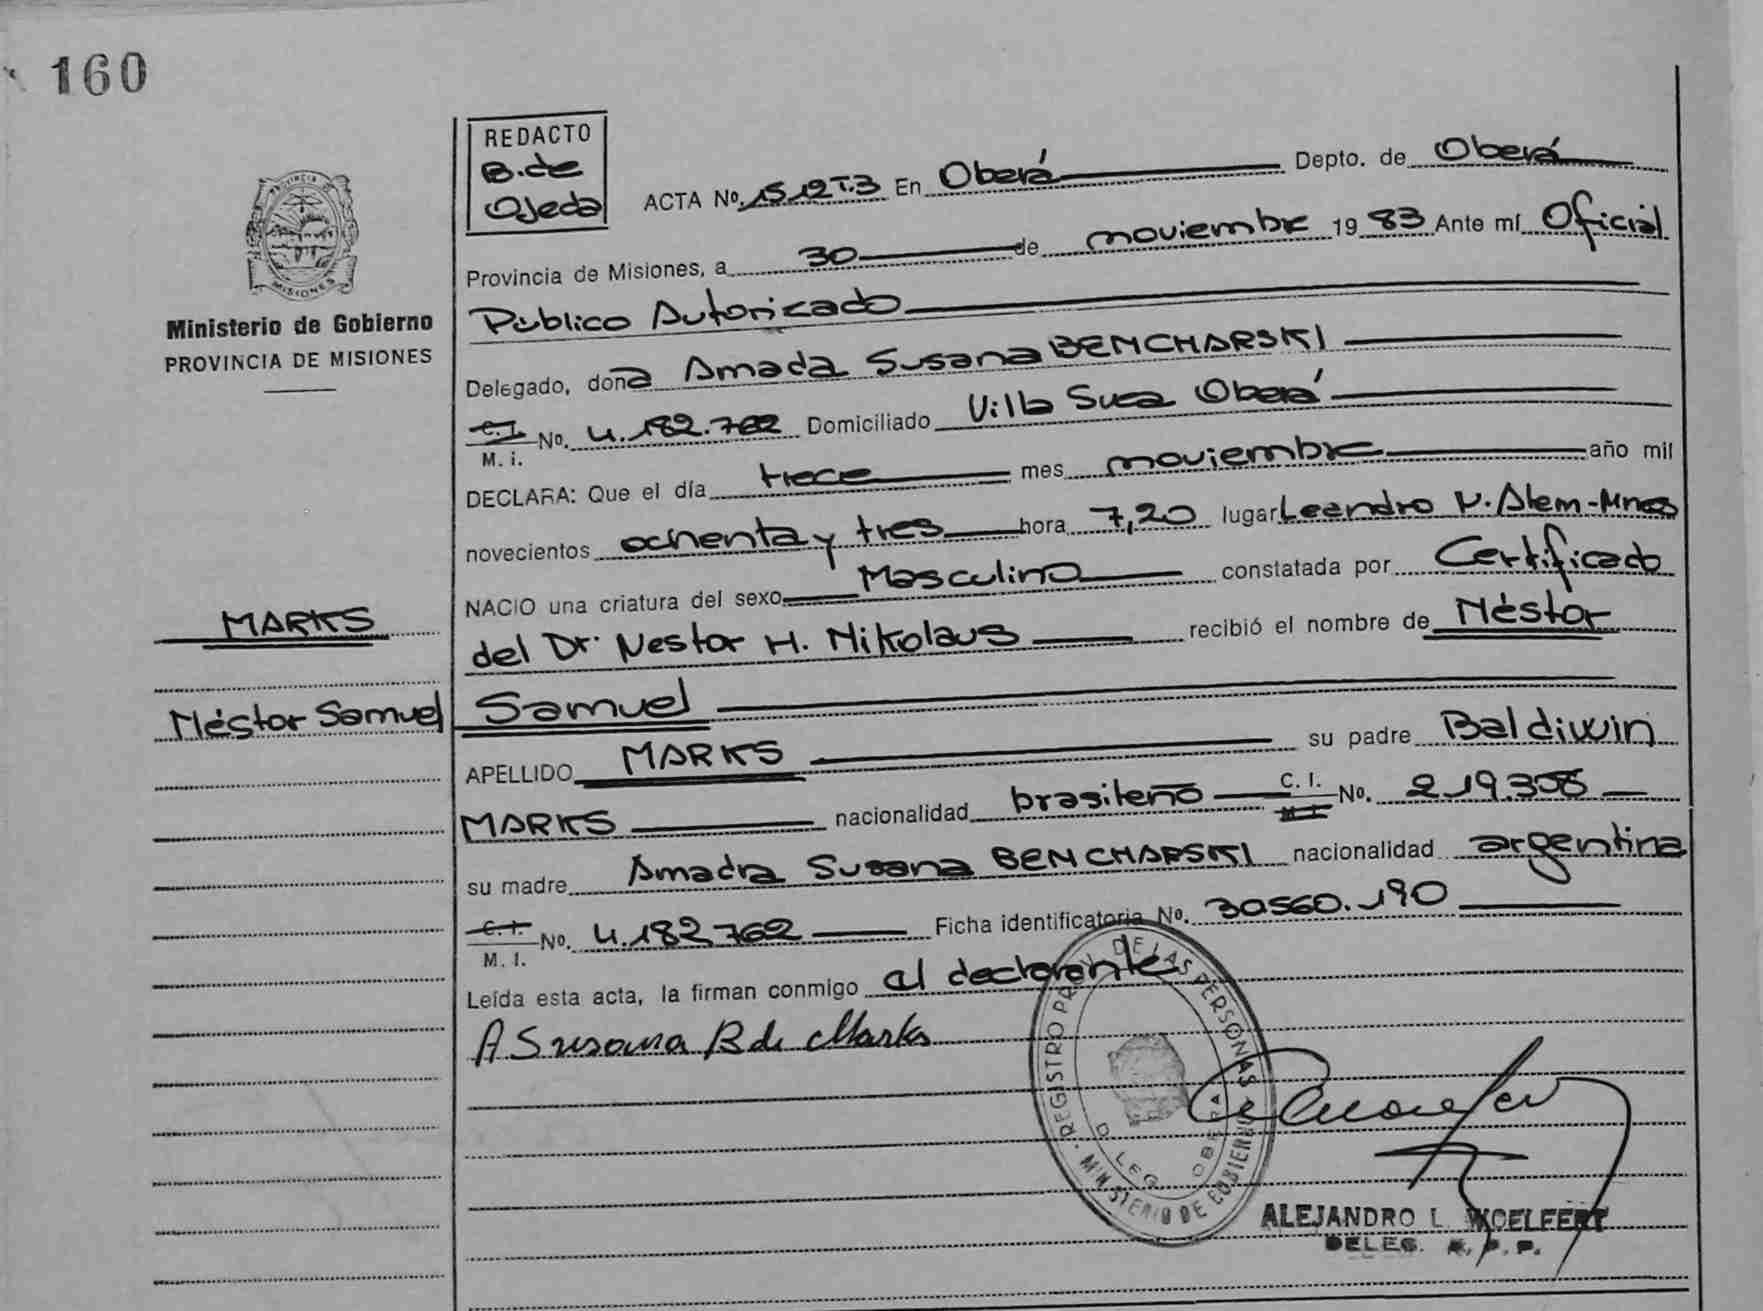 160
REDACTO
B. de
Ojeda
ACTA No. 1512 T.3 En Oberá Depto. de Oberá
Provincia de Misiones, a 30 de noviembre 1983 Ante mí Oficial
Público Autorizado
Delegado, doña Amada Susana BENCHARSKI
C.I. No. 4.182.762 Domiciliado Villa Sueca Oberá
M. i.
DECLARA: Que el día trece mes noviembre año mil
novecientos ochenta y tres hora 7,20 lugar Leandro N. Alem-Mnes
NACIO una criatura del sexo Masculino constatada por Certificado
del Dr. Nestor H. Nikolaus recibió el nombre de Néstor
Samuel
APELLIDO MARKS su padre Baldiwin
MARKS nacionalidad brasileño C. I. No. 219.358
su madre Amada Susana BENCHARSKI nacionalidad argentina
C.I. No. 4.182.762 Ficha identificatoria No. 30560.190
M. I.
Leída esta acta, la firman conmigo al declarante
A Susana B de Marks
PROVINCIA DE
MISIONES
Ministerio de Gobierno
PROVINCIA DE MISIONES
MARKS
Néstor Samuel
REGISTRO PROV DE LAS PERSONAS
MINISTERIO DE GOBIERNO
DELEG. OBERA
ALEJANDRO L. WOELFERT
DELEG. R. P. P.